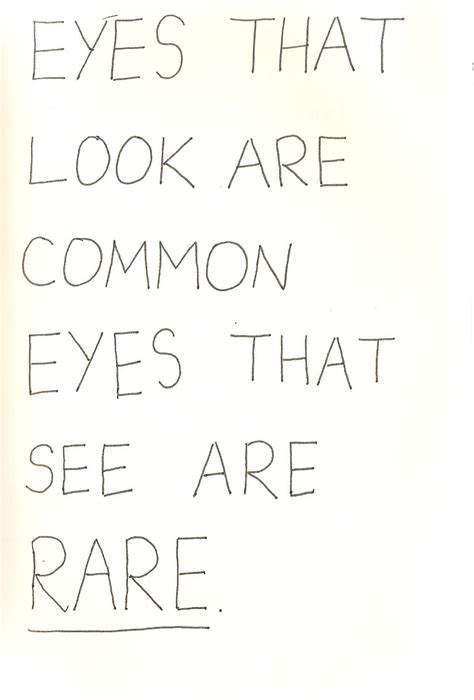 EYES THAT
LOOK ARE
COMMON
EYES THAT
SEE ARE
RARE.